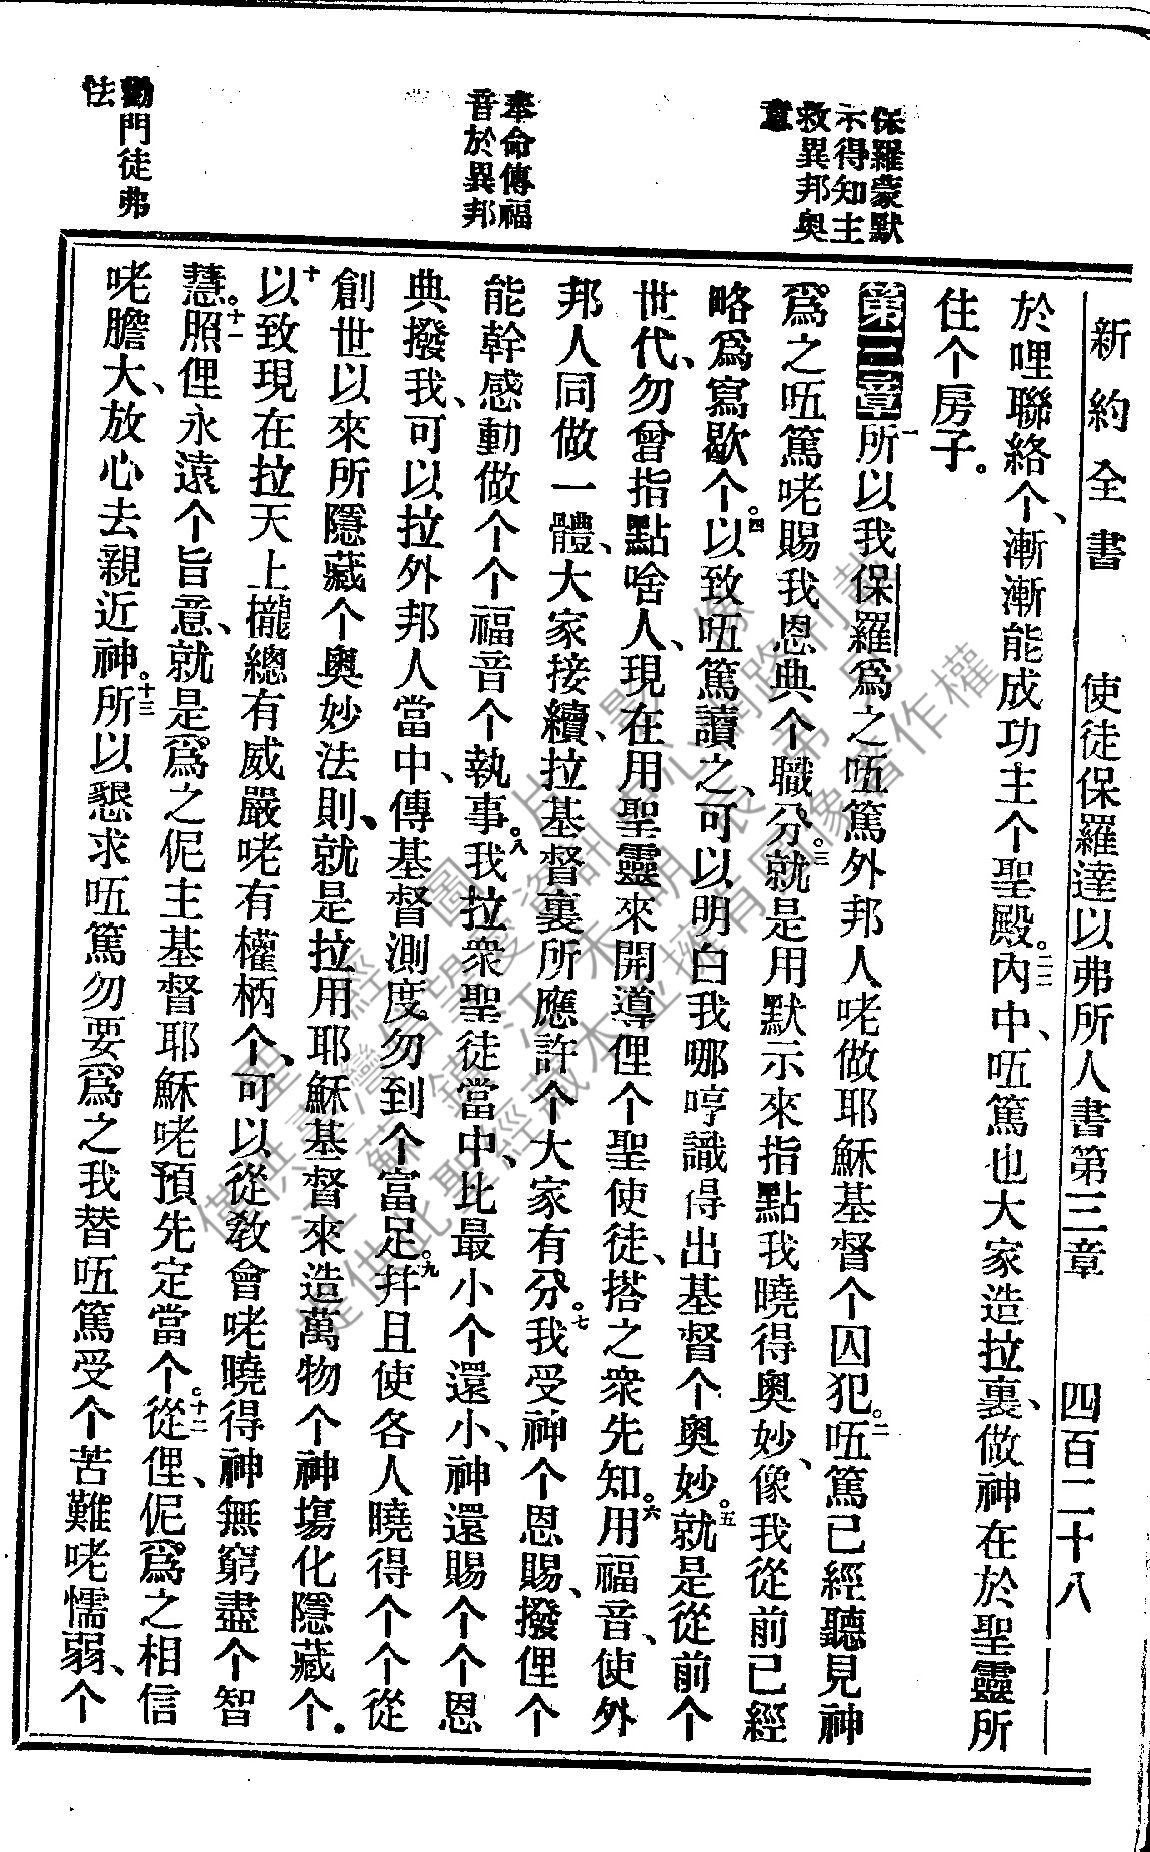 新約全書　使徒保羅達以弗所人書第三章　四百二十八
保羅蒙默
示得知主
救異邦奧
意
奉命傳福
音於異邦
勸門徒弗
怯
於哩聯絡个、漸漸能成功主个聖殿。二二內中、㕶篤也大家造拉裏、做神在於聖靈所
住个房子。
第三章一所以我保羅爲之㕶篤外邦人咾做耶穌基督个囚犯。二㕶篤已經聽見神
爲之㕶篤咾賜我恩典个職分。三就是用默示來指點我曉得奧妙、像我從前已經
略爲寫歇个。四以致㕶篤讀之、可以明白我哪哼識得出基督个奧妙。五就是從前个
世代、勿曾指點啥人、現在用聖靈來開導俚个聖使徒、搭之衆先知。六用福音、使外
邦人同做一體、大家接續、拉基督裏所應許个大家有分。七我受神个恩賜、撥俚个
能幹感動做个个福音个執事。八我拉衆聖徒當中、比最小个還小、神還賜个个恩
典撥我、可以拉外邦人當中、傳基督測度勿到个富足。九幷且使各人曉得个个從
創世以來所隱藏个奧妙法則、就是拉用耶穌基督來造萬物个神塲化隱藏个。
十以致現在拉天上攏總有威嚴咾有權柄个、可以從教會咾曉得神無窮盡个智
慧。十一照俚永遠个旨意、就是爲之伲主基督耶穌咾預先定當个。十二從俚、伲爲之相信
咾膽大、放心去親近神。十三所以懇求㕶篤勿要爲之我替㕶篤受个苦難咾懦弱、个